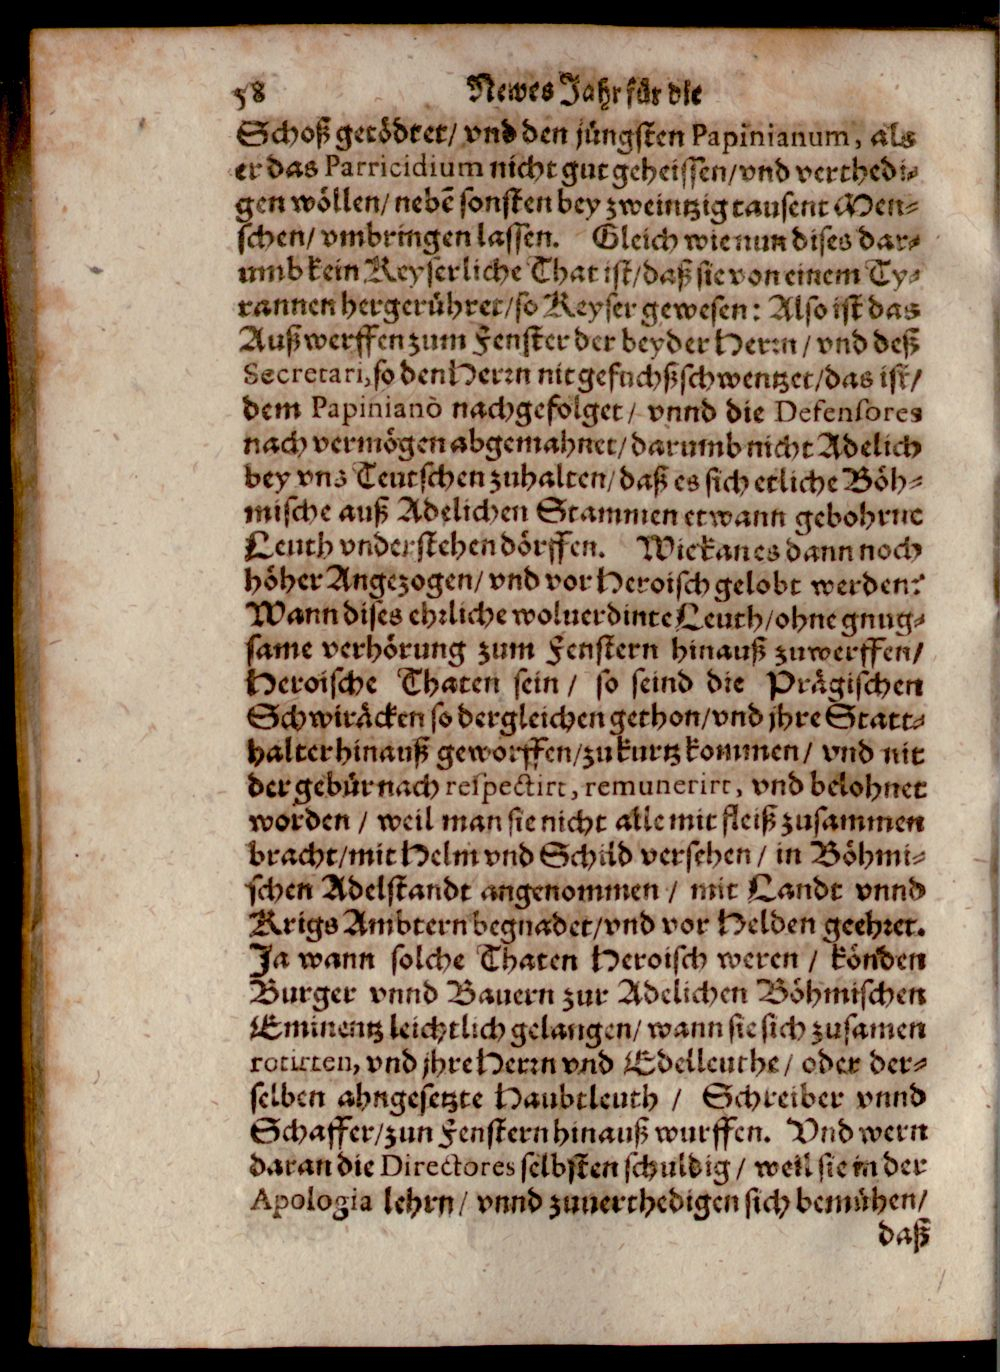 58 Newes Jahr für die
Schoß getödtet/ vnd den jüngsten Papinianum, als
er das Parricidium nicht gut geheissen/vnd verthedi-
gen wöllen/ nebẽ sonsten bey zweintzig tausent Men-
schen/ vmbringen lassen. Gleich wie nun dises dar-
umb kein Keyserliche That ist/daß sie von einem Ty-
rannen hergerühret/so Keyser gewesen: Also ist das
Außwerffen zum Fenster der beyder Herrn/ vnd deß
Secretari, so den Herrn nit gefuchßschwentzet/das ist/
dem Papinianò nachgefolget/ vnnd die Defensores
nach vermögen abgemahnet/darumb nicht Adelich
bey vns Teutschen zuhalten/daß es sich etliche Böh-
mische auß Adelichen Stammen etwann gebohrne
Leuth vnderstehen dörffen. Wie kan es dann noch
höher Angezogen/ vnd vor Heroisch gelobt werden?
Wann dises ehrliche woluerdinte Leuth/ohne gnug-
same verhörung zum Fenstern hinauß zuwerffen/
Heroische Thaten sein/ so seind die Prägischen
Schwiräcken so dergleichen gethon/vnd jhre Statt-
halter hinauß geworffen/zukurtz kommen/ vnd nit
der gebür nach respectirt, remunerirt, vnd belohnet
worden/ weil man sie nicht alle mit fleiß zusammen
bracht/mit Helm vnd Schild versehen/ in Böhmi-
schen Adelstandt angenommen/ mit Landt vnnd
Krigs Ambtern begnadet/vnd vor Helden geehret.
Ja wann solche Thaten Heroisch weren/ könden
Burger vnnd Bauern zur Adelichen Böhmischen
Eminentz leichtlich gelangen/ wann sie sich zusamen
rotirten, vnd jhre Herrn vnd Edelleuthe/ oder der-
selben ahngesetzte Haubtleuth/ Schreiber vnnd
Schaffer/zun Fenstern hinauß wurffen. Vnd wern
daran die Directores selbsten schuldig/ weil sie in der
Apologia lehrn/ vnnd zuuerthedigen sich bemühen/
daß